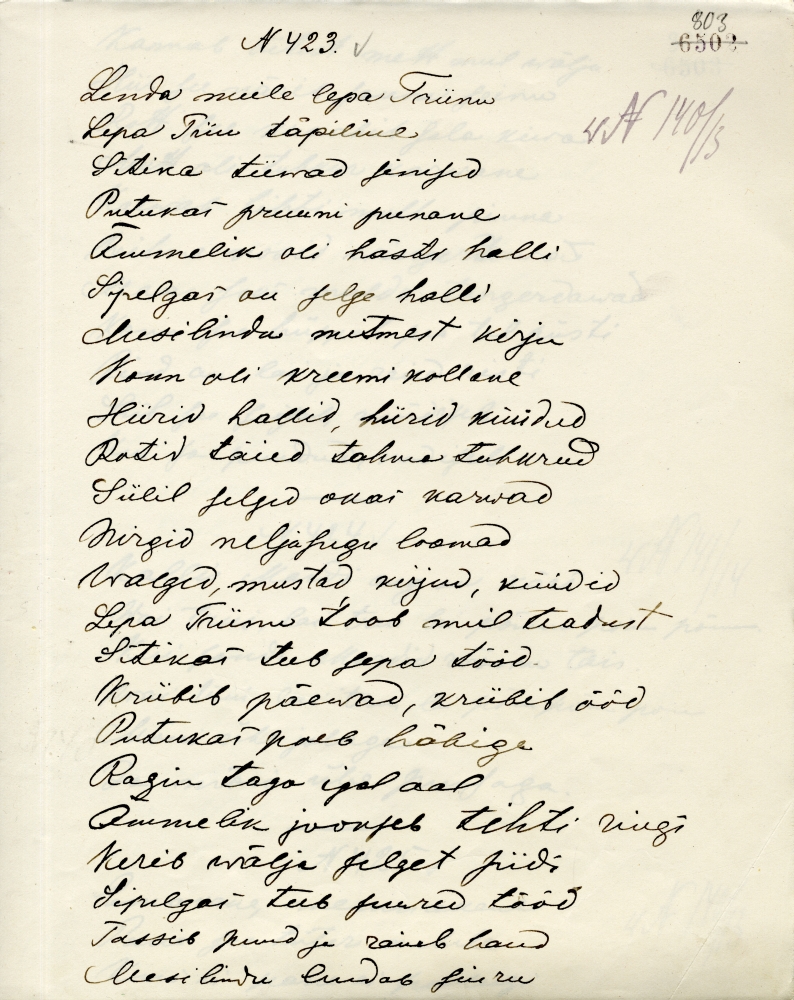 803
6502
N 423.
N 140/13
Lenda meile lepa Triinu
Lepa Triin täpiline
Sitika tiiwad sinised
Putukas pruuni punane
Ämmelik oli hästi halli
Sipelgas on selge halli
Mesilindu mitmest kirju
Konn oli kreemi kollane
Hiirid hallid, hiirid küüdud
Rotid täied tahma tuhkrud
Siilil selged okas karwad
Nirgid neljasugu loomad
Walged, mustad, kirjud, küüdid
Lepa Triinu toob meil teadust
Sitikas teeb sepa tööd.
Kriibib päewad, kriibib ööd
Putukas poeb häbiga
Ragin taga igal aal
Ämmelik joonseb tihti ringi
Kerib wälja selget siidi
Sipelgas teeb suured tööd
Tassib puud ja
Mesilindu lendab suuru